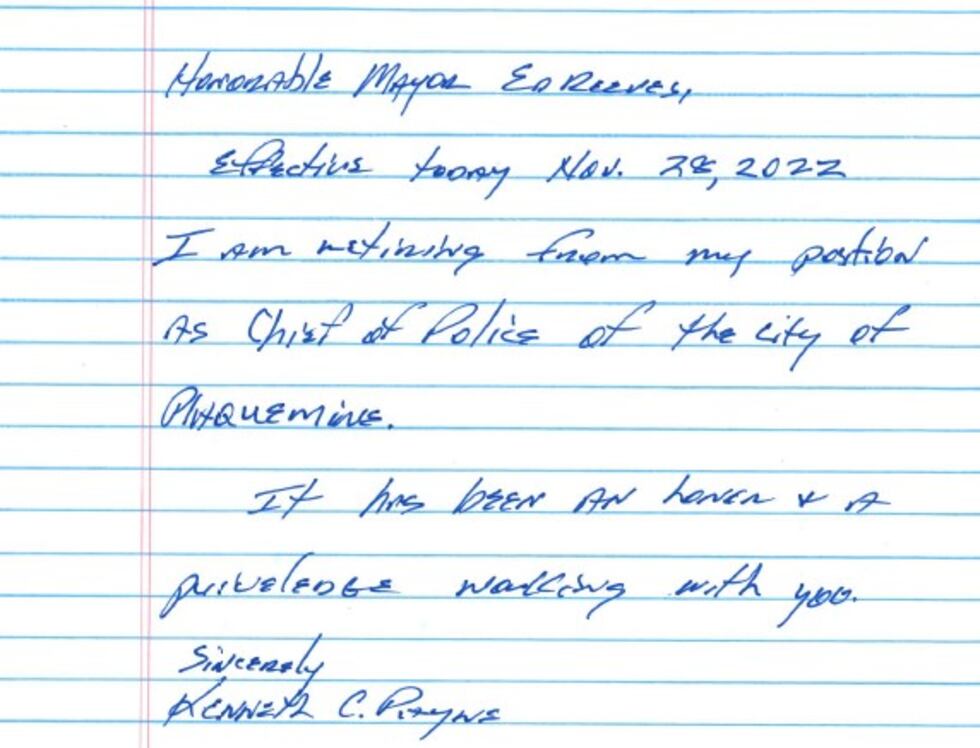 Honorable Mayor Ed Reeves,
Effective today Nov. 28, 2022
I am retiring from my position
As Chief of Police of the city of
Plaquemine.
It has been an honor & a
priveledge working with you.
Sincerely
Kenneth C. Payne